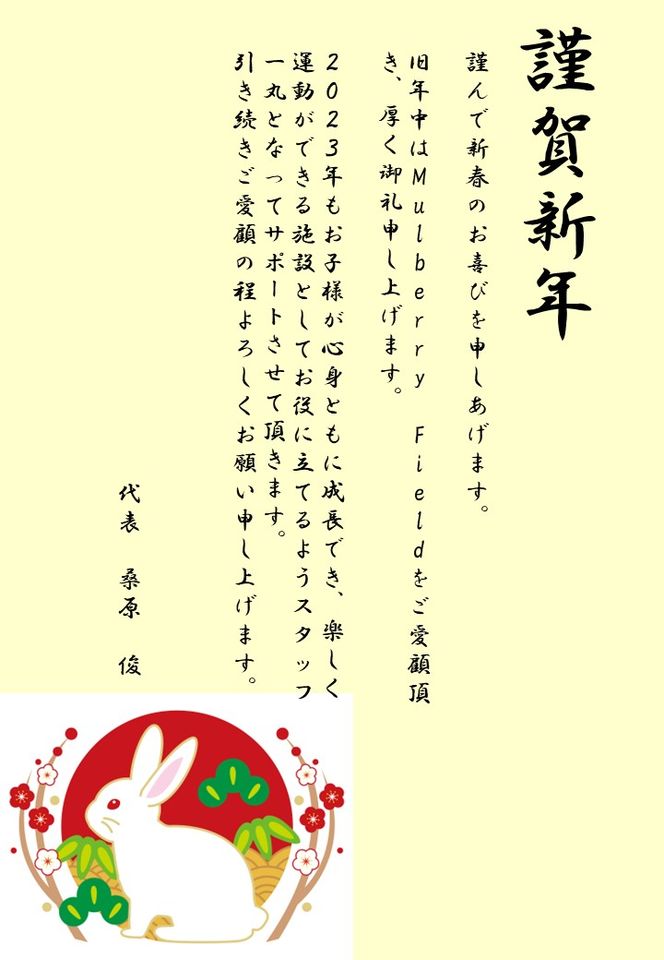 謹賀新年
謹んで新春のお喜びを申しあげます。
旧年中はＭｕｌｂｅｒｒｙ　Ｆｉｅｌｄをご愛顧頂
き、厚く御礼申し上げます。
２０２３年もお子様が心身ともに成長でき、楽しく
運動ができる施設としてお役に立てるようスタッフ
一丸となってサポートさせて頂きます。
引き続きご愛顧の程よろしくお願い申し上げます。
代表　桑原　俊